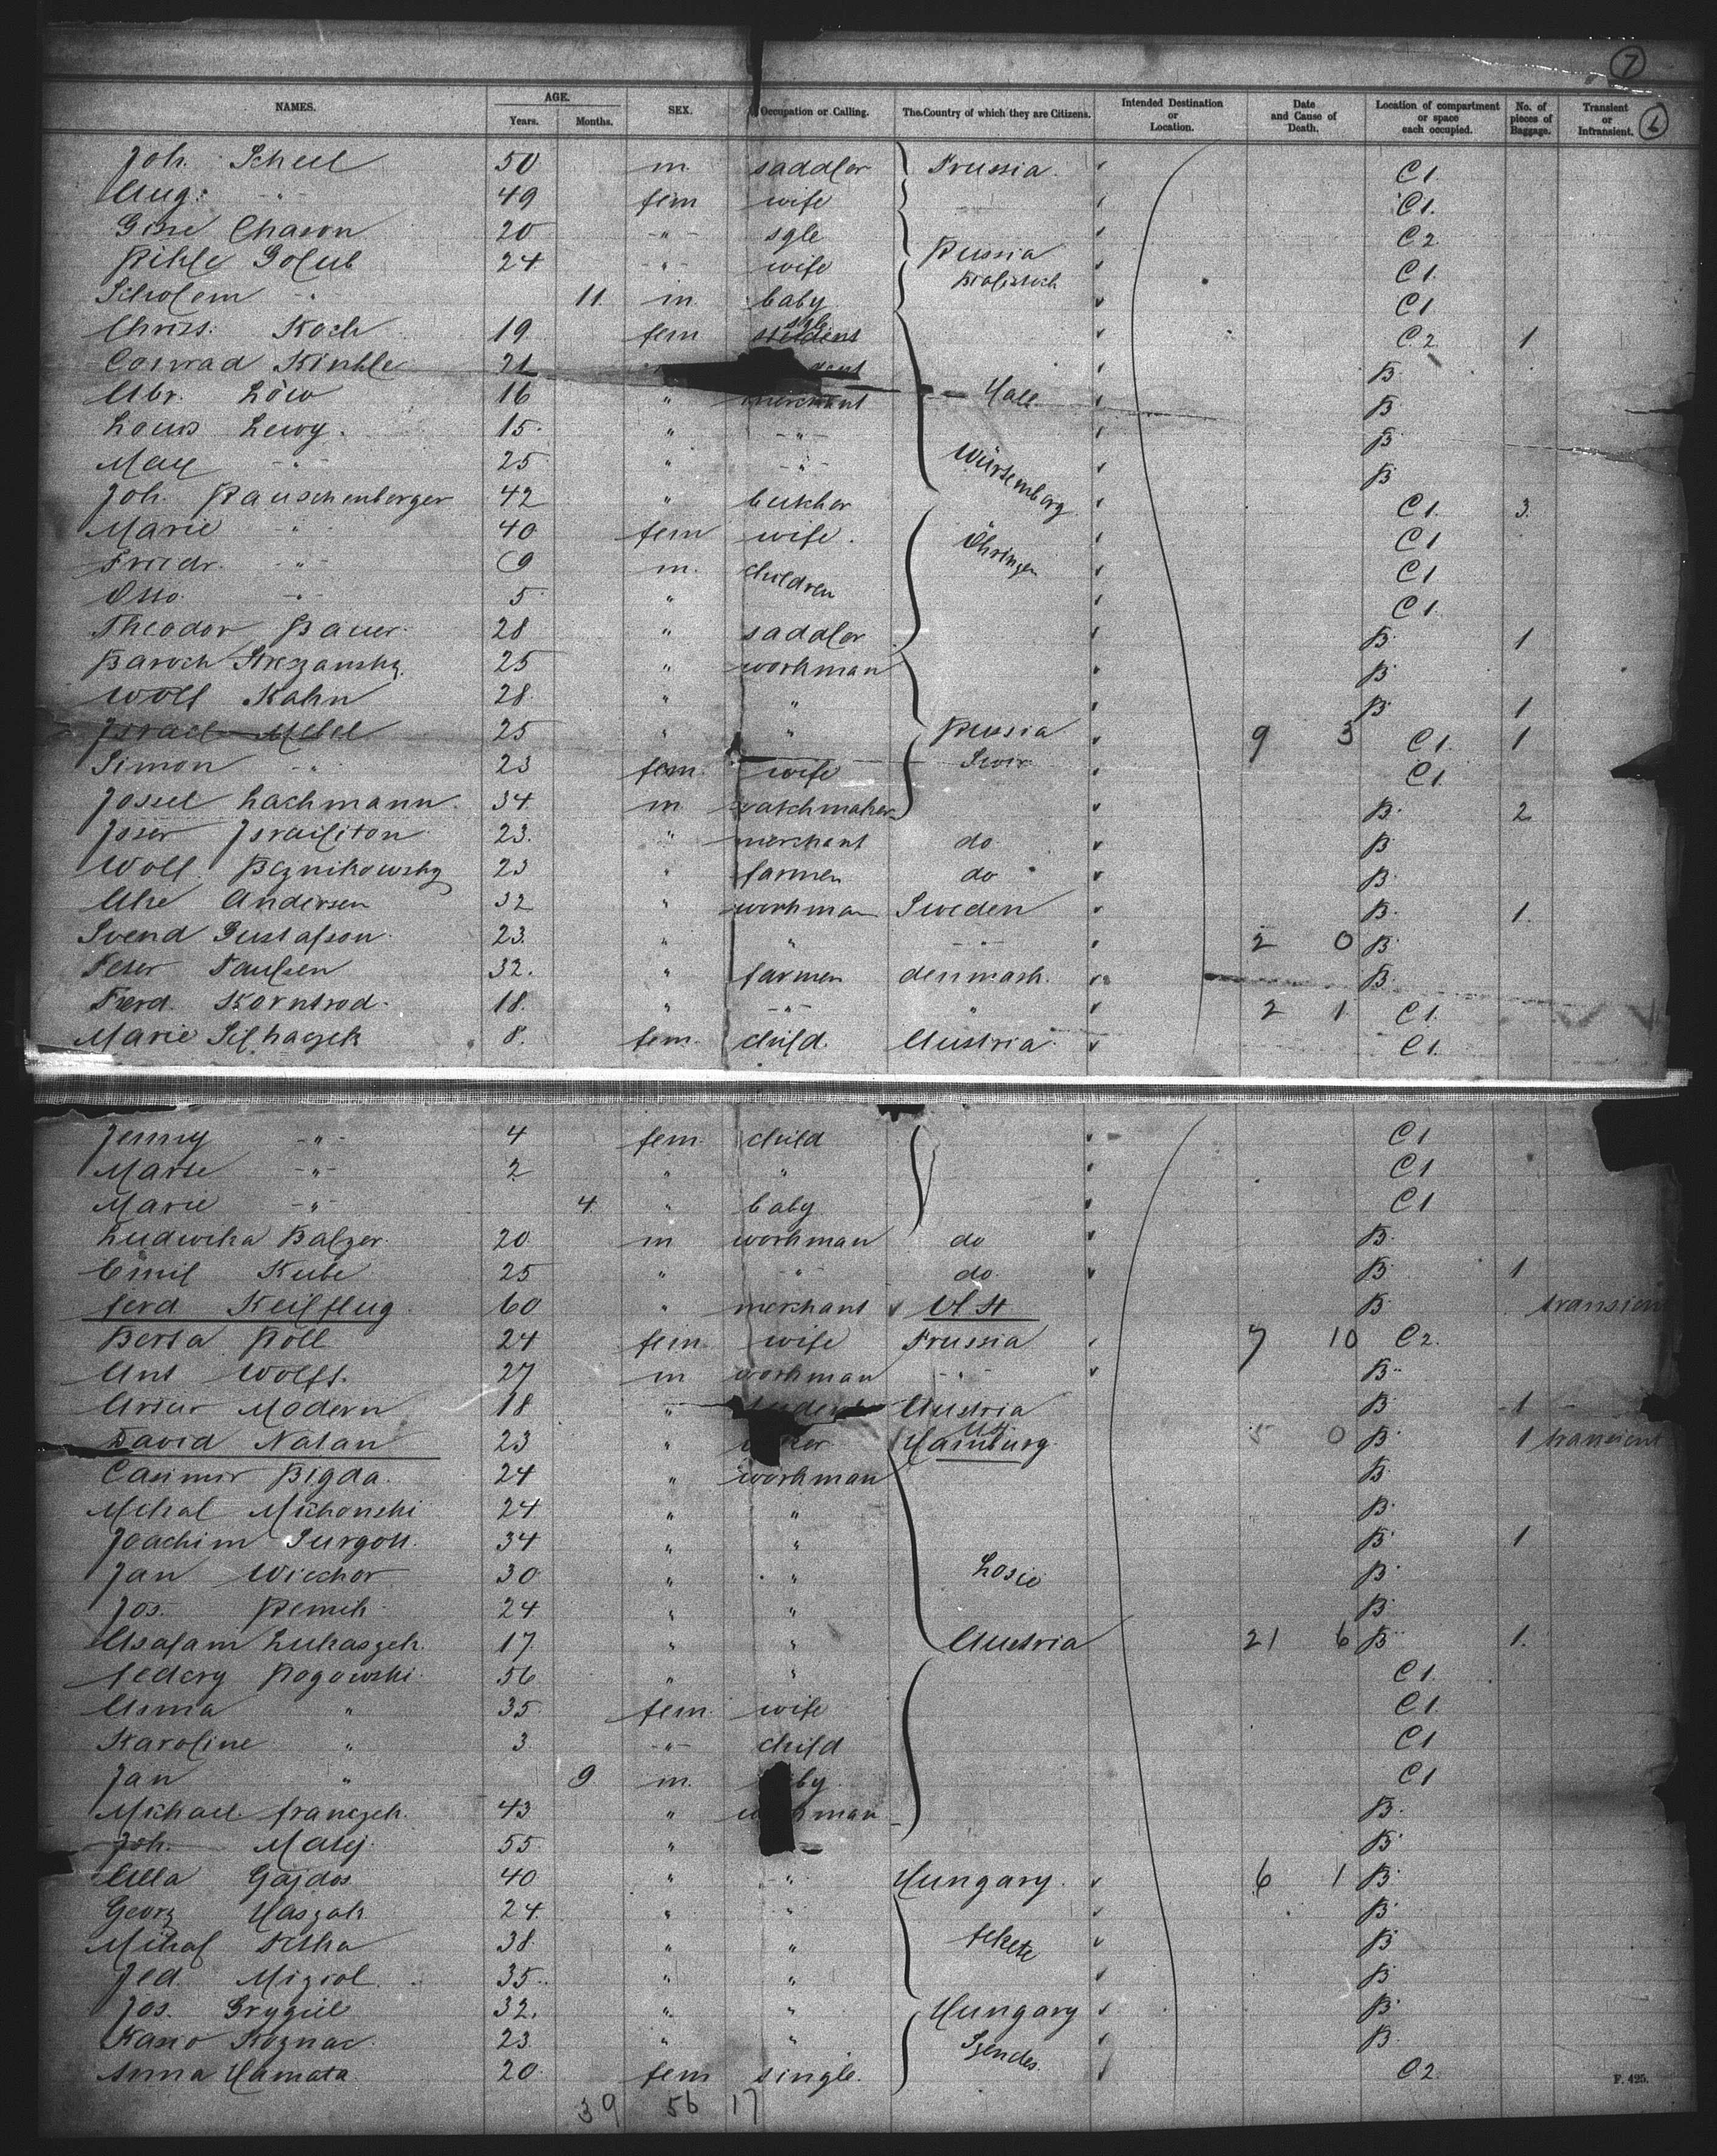 7
6
NAMES. AGE. Years. Months. SEX. Occupation or Calling. The Country of which they are Citizens. Intended Destination or Location. Date and Cause of Death. Location of compartment or space each occupied. No. of pieces of Baggage. Transient or Intransient.
Joh. Scheel 50 m. saddler Prussia C1
Aug: -"- 49 fem wife C1.
Gine Chason 20 -"- sgle C2
Rihle Golub 24 -"- wife Russia C1.
Scholem -"- 11. m baby Bialistock C1
Chriss. Koch 19 fem sgle C.2 1
Conrad Kinkle 21 B.
Abr. Löw 16 " merchant Hall B
Louis Lewy. 15. " -"- B
Max -"- 25 " -"- Würtemberg B
Joh. Rauschenberger 42 " butcher C1. 3.
Marie " 40 fem wife. Öhringen C1
Friedr. -"- 9 m. children C1
Otto -"- 5 " C1.
Theodor Bauer. 28 " saddler B. 1
Baroch 25 " workman B.
Wolf Kahn 28. " " B. 1
Israel Mebel 25 " " Russia 9 3 C1. 1
Simon -"- 23 fem. wife Swir C1.
Jossel Lachmann. 34 m. watchmaker B. 2
Joser Israeliton 23. " merchant do B
Wolf. Reznikowsky 23 " farmer do B.
Ake Andersen 32 " workman Sweden B. 1.
Svend Gustafson. 23. " " -"- 2 0 B.
Peter Paulsen 32. " farmer denmark. B.
Ferd. Korntrod. 18. " -"- " 2 1 C1.
Marie Silhaczek 8. fem. child. Austria. C1.
Jenny -"- 4 fem. child C1
Marie -"- 2 " " C1
Marie -"- 4. " baby C1
Ludwika Balzer. 20. m workman do B.
Emil Kube 25 " -"- do. B. 1
ferd Keilflug. 60 " merchant U St B transient
Berta Röll 24 fem. wife Prussia 7 10 C2.
Ant Wolff. 27 m workman -"- B.
Artur Modern 18 " student Austria B. 1
David Natan 23 " Hamburg. U.S. 5 0 B. 1 transient
Casimir Bigda. 24 " workman B.
Michal Michonski 24. " " B.
Joachim Surgott. 34 " " B. 1
Jan Wiechor 30 " " Losie B.
Jos. 24 " " B.
Lukaszek. 17. " " Austria 21 6 B. 1.
Rogowski. 56 " " C1.
Anna " 35. fem. wife C1
Karoline " 3. -"- child C1
Jan " 9 m. baby. C1
Michael franczek. 43 " workman B.
Joh. Matej. 55. " B.
Gajdos 40 " -"- Hungary. 6 1 B.
Georg Haszak 24 " " B
Mihal 38. " " fekete B
Jed. Mizrol. 35. " " B
Jos. Grygiel 32. " " Hungary B.
Koznac. 23. " " Szendes. B.
Anna Hamata. 20. fem single. C2.
39 56 17
F. 425.